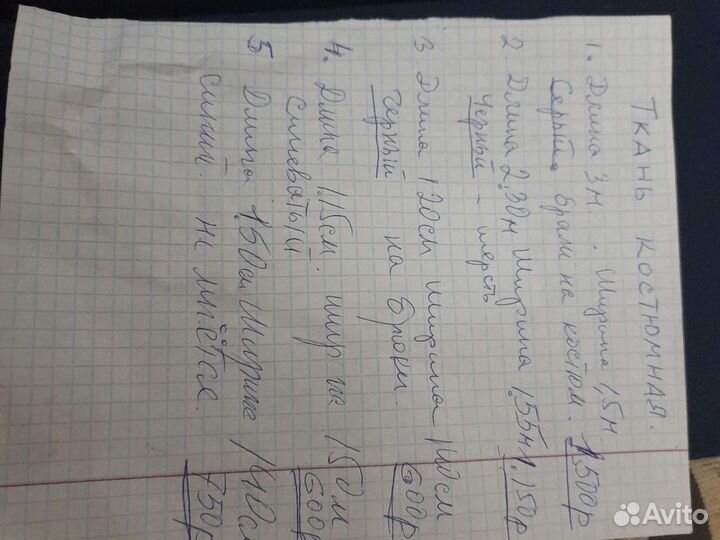 ТКАНЬ КОСТЮМНАЯ.
1. Длина 3м. Ширина 1,5м.
Серый. брали на костюм. 1500р
2 Длина 2.30м Ширина 1.55м 1.150р
Черный - шерсть
3 Длина 120см ширина 140см
Черный на брюки. 600р
4. Длина 1.15см. шир на 150м
Синеватый 600р
5 Длина 1.50см Ширине 140см
синий. не мнётся. 750р
Avito